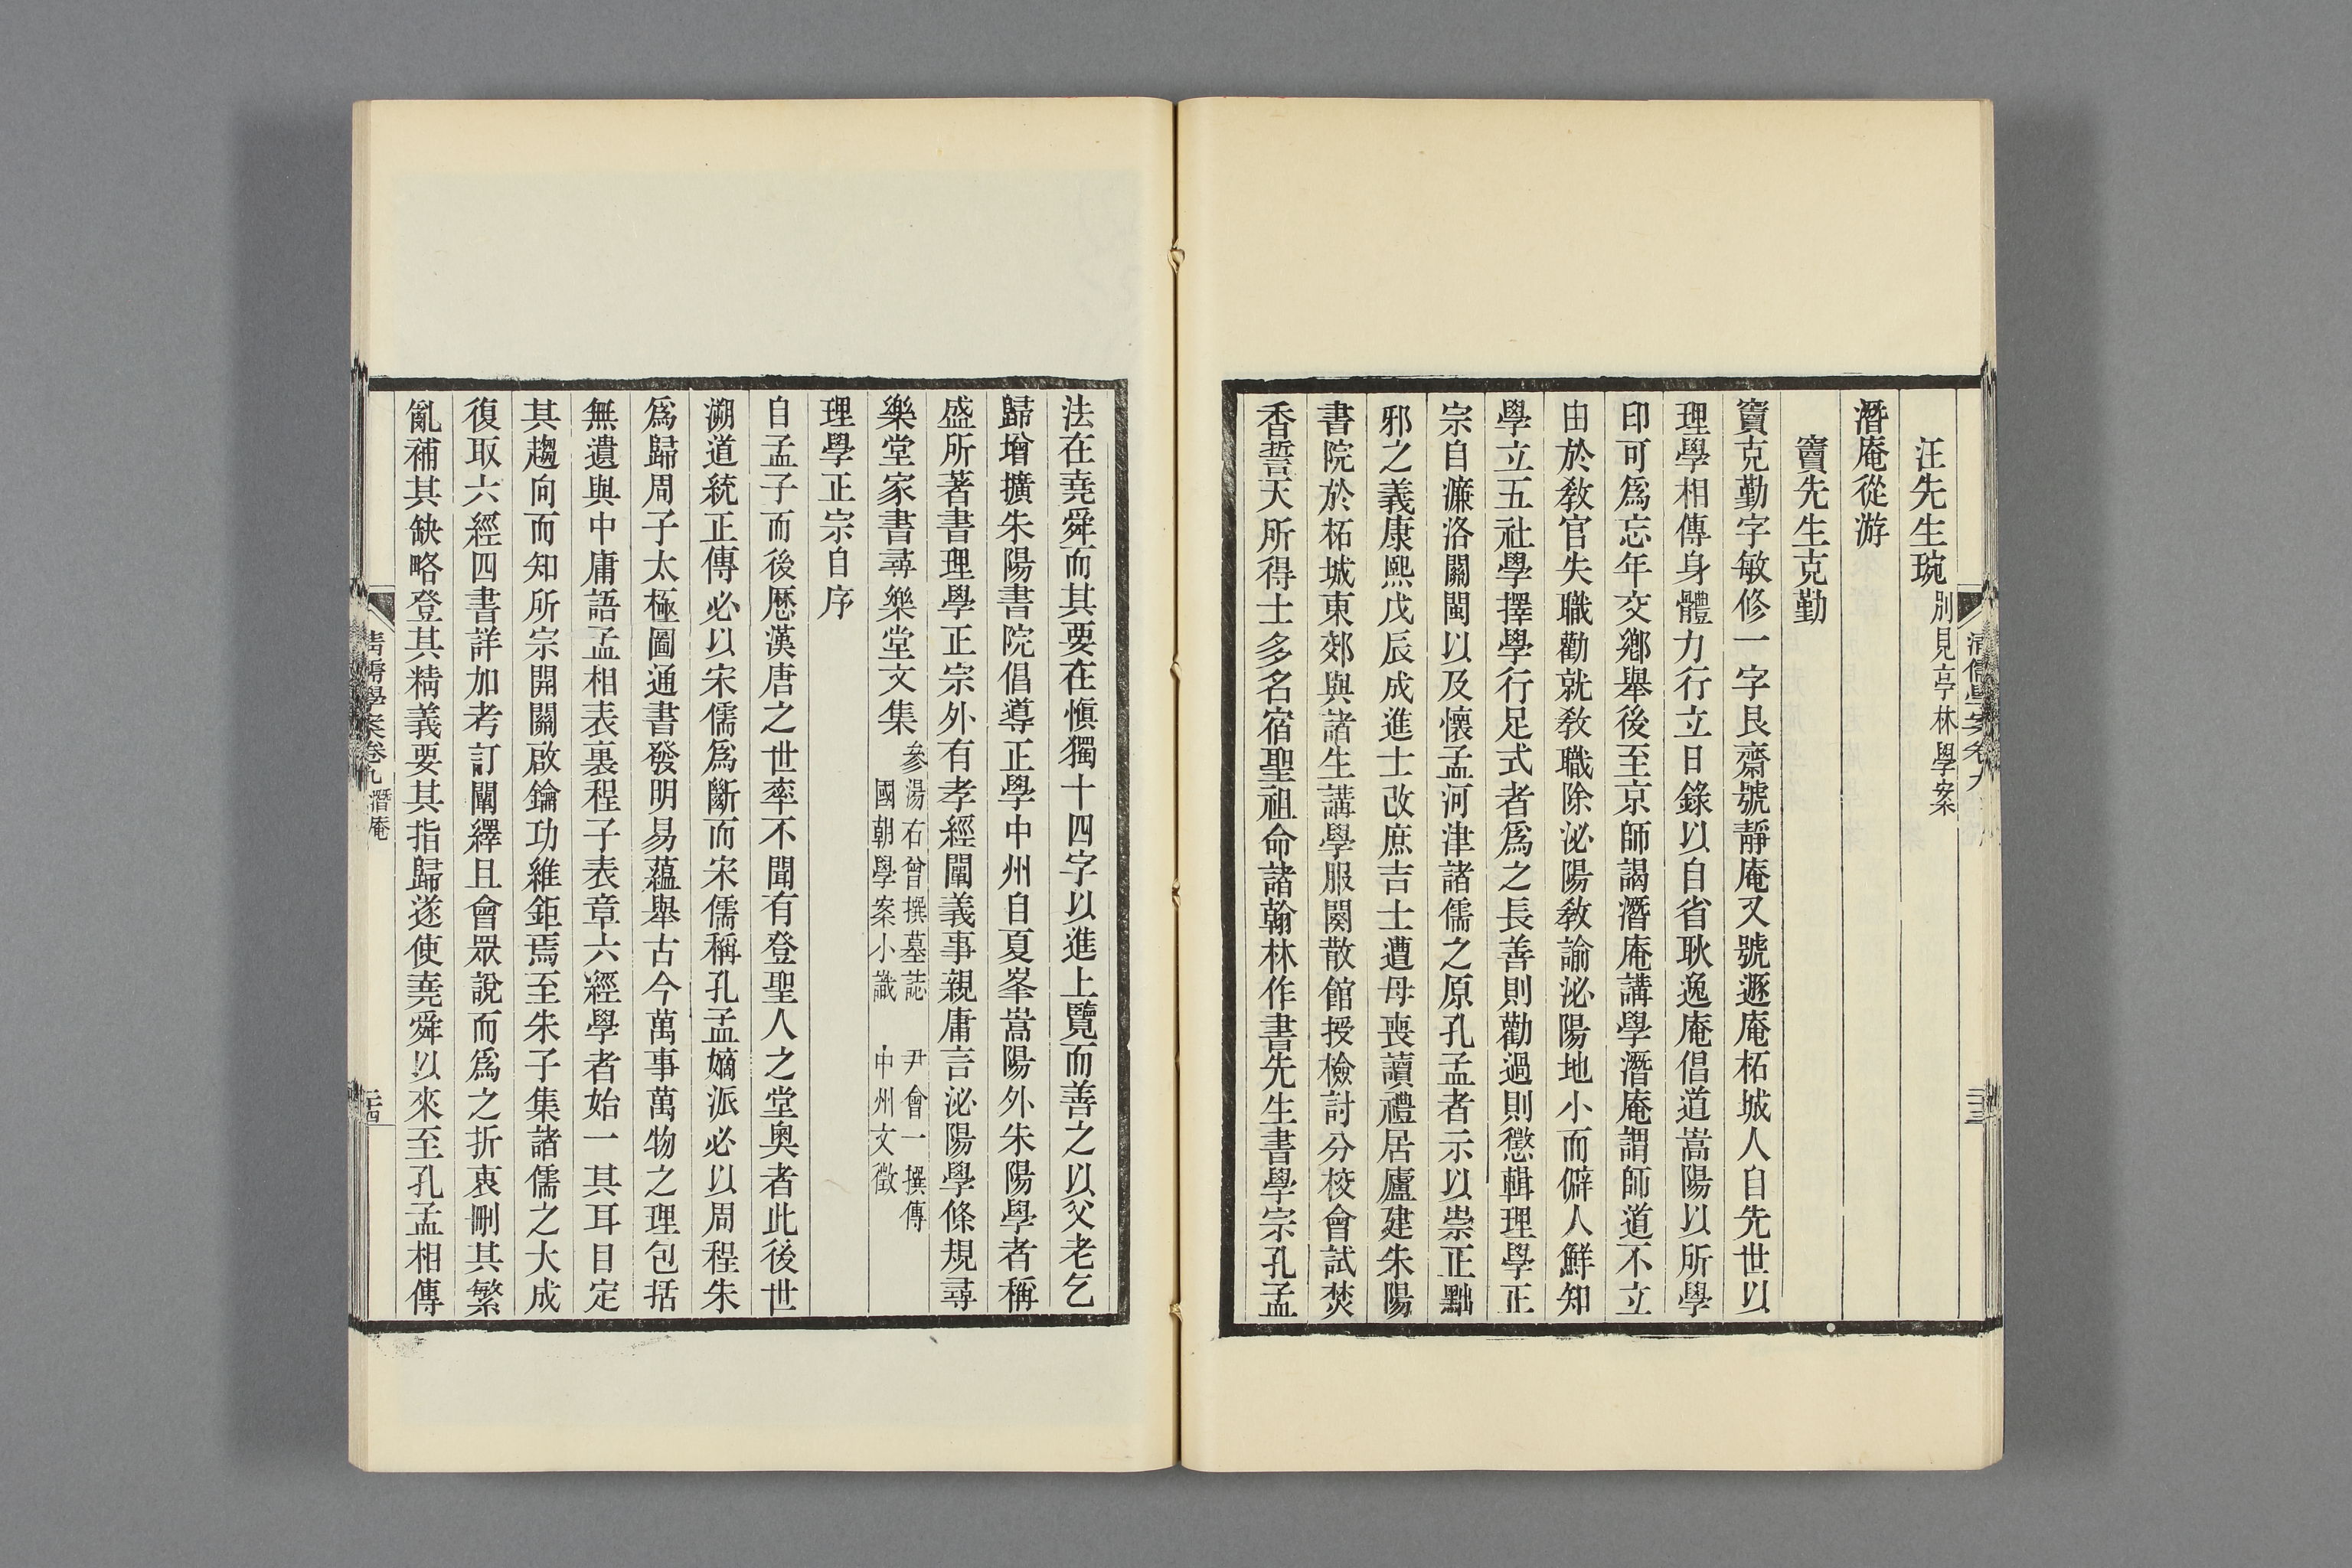 汪先生琬別見亭林學案
潛庵從游
竇先生克勤
竇克勤字敏修一字艮齋號靜庵又號遯庵柘城人自先世以
理學相傳身體力行立日錄以自省耿逸庵倡道嵩陽以所學
印可爲忘年交鄉舉後至京師謁潛庵講學潛庵謂師道不立
由於敎官失職勸就敎職除泌陽敎諭泌陽地小而僻人鮮知
學立五社學擇學行足式者爲之長善則勸過則懲輯理學正
宗自濂洛關閩以及懷孟河津諸儒之原孔孟者示以崇正黜
邪之義康熙戊辰成進士改庶吉士遭母喪讀禮居廬建朱陽
書院於柘城東郊與諸生講學服闋散館授檢討分校會試焚
香誓天所得士多名宿聖祖命諸翰林作書先生書學宗孔孟
法在堯舜而其要在愼獨十四字以進上覽而善之以父老乞
歸增擴朱陽書院倡導正學中州自夏峯嵩陽外朱陽學者稱
盛所著書理學正宗外有孝經闡義事親庸言泌陽學條規尋
樂堂家書尋樂堂文集參湯右曾撰墓誌 尹會一撰傳
國朝學案小識 中州文徵
理學正宗自序
自孟子而後歷漢唐之世率不聞有登聖人之堂奥者此後世
溯道統正傳必以宋儒爲斷而宋儒稱孔孟嫡派必以周程朱
爲歸周子太極圖通書發明易蘊舉古今萬事萬物之理包括
無遺與中庸語孟相表裏程子表章六經學者始一其耳目定
其趨向而知所宗開關啟鑰功維鉅焉至朱子集諸儒之大成
復取六經四書詳加考訂闡繹且會眾說而爲之折衷刪其繁
亂補其缺略登其精義要其指歸遂使堯舜以來至孔孟相傳
清儒學案卷九 潛庵